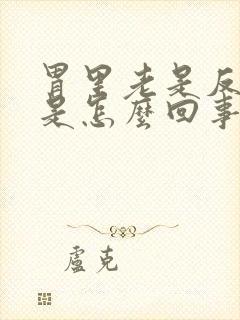 胃里老是反
是怎麼回事
盧克